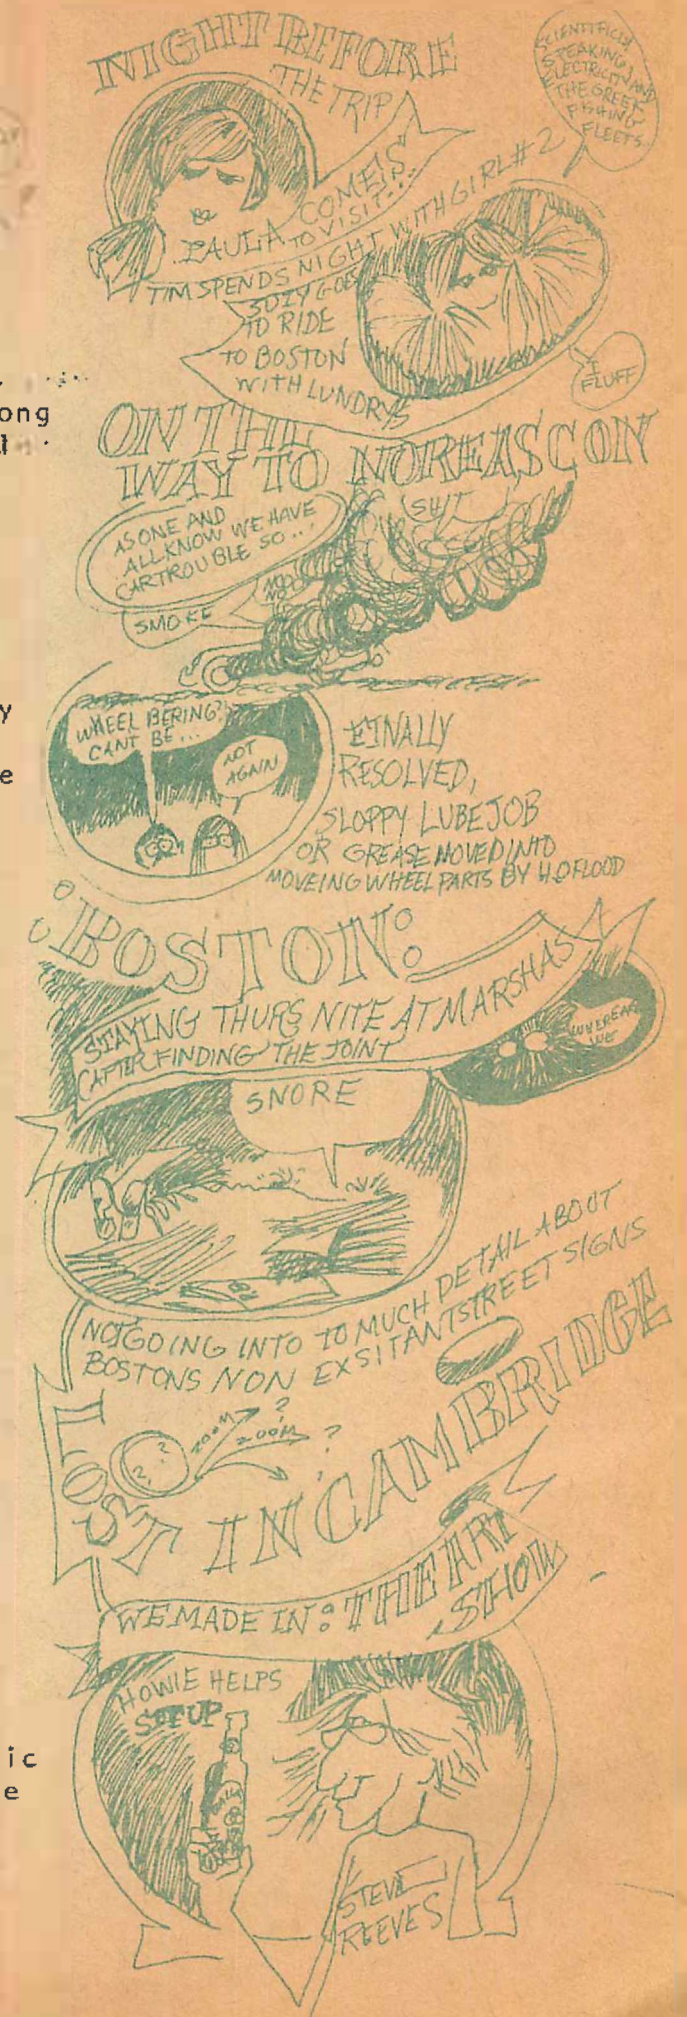 NIGHT BEFORE
THE TRIP
SCIENTIFICLY
SPEAKING,
ELECTRICITY AND
THE GREEK
FISHING
FLEETS
PAULA COMEIS
TO VISIT...
TIM SPENDS NIGHT WITH GIRL #2
SUZY GOES
TO RIDE
TO BOSTON
WITH LUNDRYS
I
FLUFF
ong
ON THE
WAY TO NOREASCON
AS ONE AND
ALL KNOW WE HAVE
CAR TROUBLE SO...
SMOKE
y
e
WHEEL BERING?
CANT BE...
NOT
AGAIN
FINALLY
RESOLVED,
SLOPPY LUBE JOB
OR GREASE MOVED INTO
MOVEING WHEEL PARTS BY H2O FLOOD
BOSTON:
STAYING THURS NITE AT MARSHAS
(AFTER FINDING THE JOINT
WHERE ARE
WE
SNORE
NOT GOING INTO TO MUCH DETAIL ABOUT
BOSTONS NON EXSITANT STREET SIGNS
LOST IN CAMBRIDGE
? ?
ZOOM ?
ZOOM ?
WE MADE IN: THE ART
SHOW
HOWIE HELPS
SET UP
ic
e
STEVE
REEVES